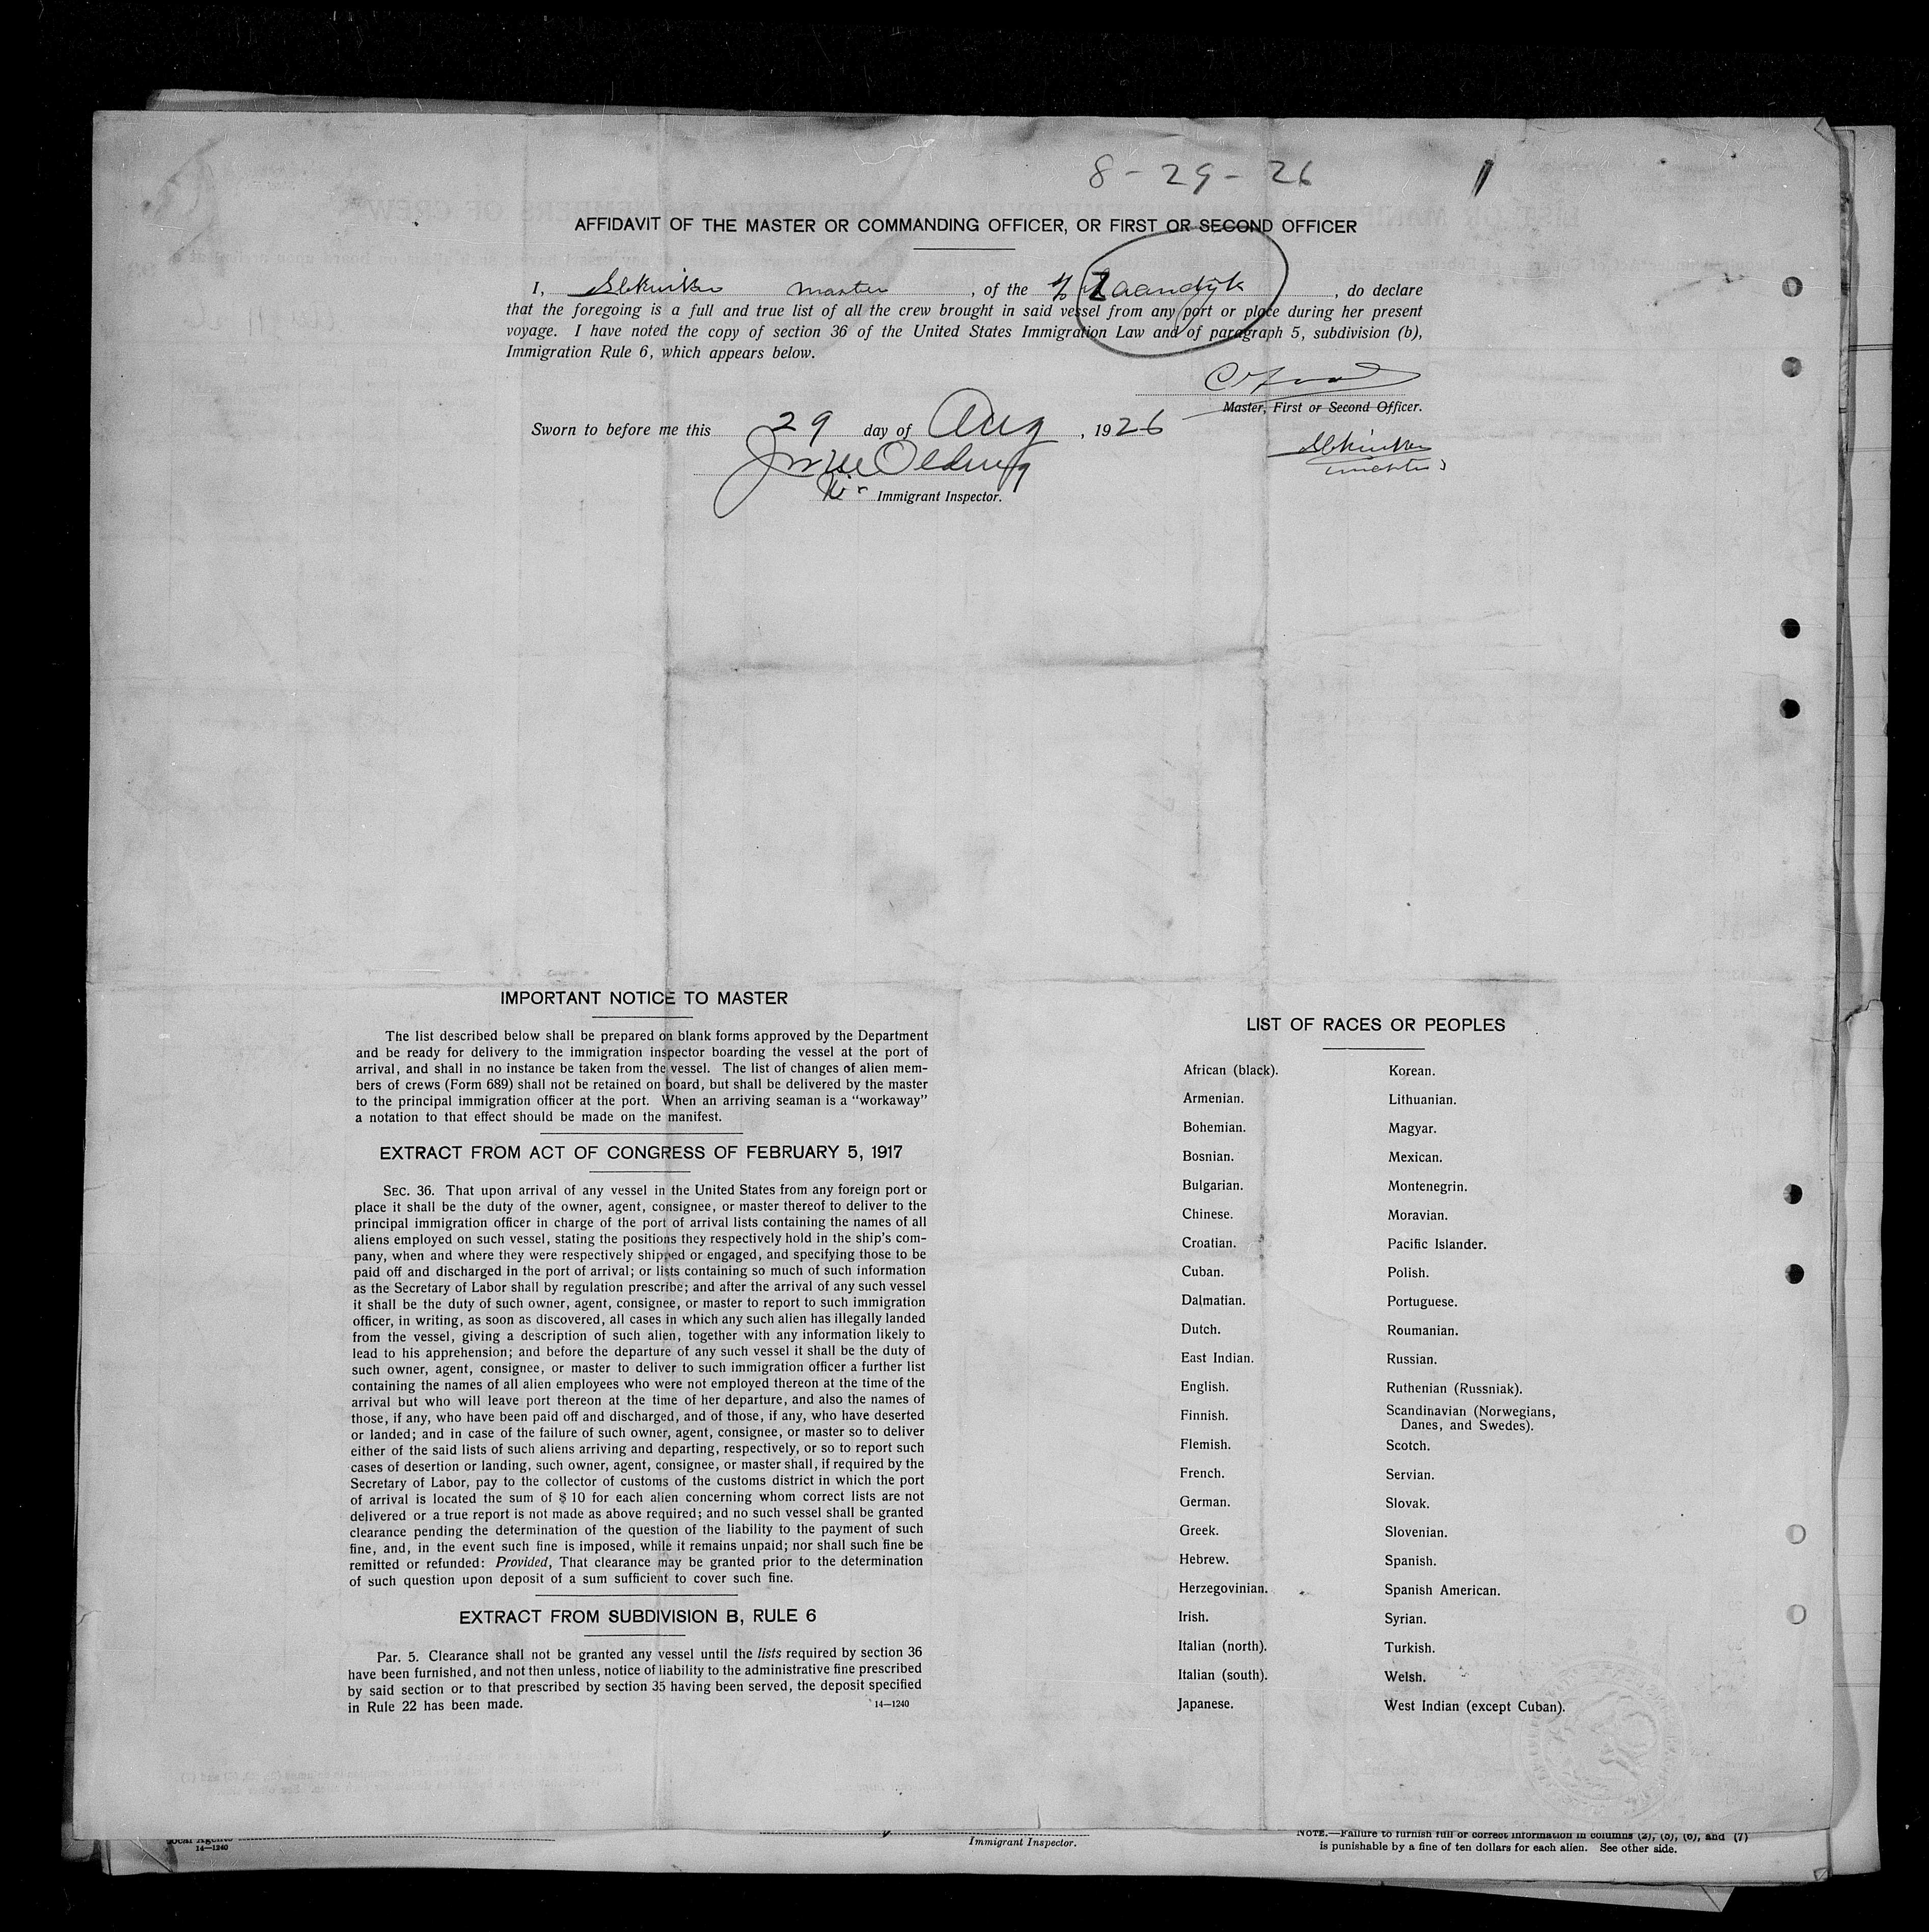 8-29-26 1
AFFIDAVIT OF THE MASTER OR COMMANDING OFFICER, OR FIRST OR SECOND OFFICER
I, master, of the Zaandijk, do declare
that the foregoing is a full and true list of all the crew brought in said vessel from any port or place during her present
voyage. I have noted the copy of section 36 of the United States Immigration Law and of paragraph 5, subdivision (b),
Immigration Rule 6, which appears below.
Master, First or Second Officer.
Sworn to before me this 29 day of Aug, 1926
Immigrant Inspector.
IMPORTANT NOTICE TO MASTER
The list described below shall be prepared on blank forms approved by the Department
and be ready for delivery to the immigration inspector boarding the vessel at the port of
arrival, and shall in no instance be taken from the vessel. The list of changes of alien mem-
bers of crews (Form 689) shall not be retained on board, but shall be delivered by the master
to the principal immigration officer at the port. When an arriving seaman is a "workaway"
a notation to that effect should be made on the manifest.
EXTRACT FROM ACT OF CONGRESS OF FEBRUARY 5, 1917
SEC. 36. That upon arrival of any vessel in the United States from any foreign port or
place it shall be the duty of the owner, agent, consignee, or master thereof to deliver to the
principal immigration officer in charge of the port of arrival lists containing the names of all
aliens employed on such vessel, stating the positions they respectively hold in the ship's com-
pany, when and where they were respectively shipped or engaged, and specifying those to be
paid off and discharged in the port of arrival; or lists containing so much of such information
as the Secretary of Labor shall by regulation prescribe; and after the arrival of any such vessel
it shall be the duty of such owner, agent, consignee, or master to report to such immigration
officer, in writing, as soon as discovered, all cases in which any such alien has illegally landed
from the vessel, giving a description of such alien, together with any information likely to
lead to his apprehension; and before the departure of any such vessel it shall be the duty of
such owner, agent, consignee, or master to deliver to such immigration officer a further list
containing the names of all alien employees who were not employed thereon at the time of the
arrival but who will leave port thereon at the time of her departure, and also the names of
those, if any, who have been paid off and discharged, and of those, if any, who have deserted
or landed; and in case of the failure of such owner, agent, consignee, or master so to deliver
either of the said lists of such aliens arriving and departing, respectively, or so to report such
cases of desertion or landing, such owner, agent, consignee, or master shall, if required by the
Secretary of Labor, pay to the collector of customs of the customs district in which the port
of arrival is located the sum of $10 for each alien concerning whom correct lists are not
delivered or a true report is not made as above required; and no such vessel shall be granted
clearance pending the determination of the question of the liability to the payment of such
fine, and, in the event such fine is imposed, while it remains unpaid; nor shall such fine be
remitted or refunded: Provided, That clearance may be granted prior to the determination
of such question upon deposit of a sum sufficient to cover such fine.
EXTRACT FROM SUBDIVISION B, RULE 6
Par. 5. Clearance shall not be granted any vessel until the lists required by section 36
have been furnished, and not then unless, notice of liability to the administrative fine prescribed
by said section or to that prescribed by section 35 having been served, the deposit specified
in Rule 22 has been made. 14—1240
LIST OF RACES OR PEOPLES
African (black). Korean.
Armenian. Lithuanian.
Bohemian. Magyar.
Bosnian. Mexican.
Bulgarian. Montenegrin.
Chinese. Moravian.
Croatian. Pacific Islander.
Cuban. Polish.
Dalmatian. Portuguese.
Dutch. Roumanian.
East Indian. Russian.
English. Ruthenian (Russniak).
Finnish. Scandinavian (Norwegians,
Danes, and Swedes).
Flemish. Scotch.
French. Servian.
German. Slovak.
Greek. Slovenian.
Hebrew. Spanish.
Herzegovinian. Spanish American.
Irish. Syrian.
Italian (north). Turkish.
Italian (south). Welsh.
Japanese. West Indian (except Cuban).
14—1240
Immigrant Inspector.
NOTE.—Failure to furnish full or correct information in columns (2), (5), (6), and (7)
is punishable by a fine of ten dollars for each alien. See other side.